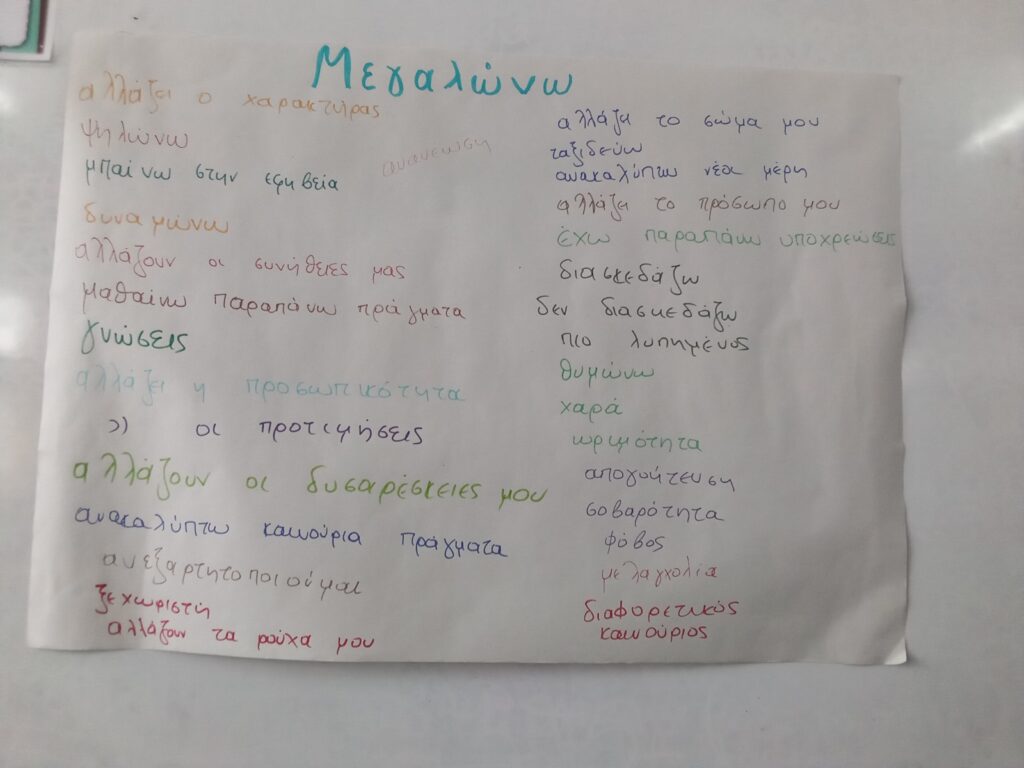 Μεγαλώνω
αλλάζει ο χαρακτήρας
ψηλώνω
ανανέωση
μπαίνω στην εφηβεία
δυναμώνω
αλλάζουν οι συνήθειες μας
μαθαίνω παραπάνω πράγματα
γνώσεις
αλλάζει η προσωπικότητα
>> οι προτιμήσεις
αλλάζουν οι δυσαρέσκειες μου
ανακαλύπτω καινούρια πράγματα
ανεξαρτητοποιούμαι
ξεχωριστή
αλλάζουν τα ρούχα μου
αλλάζει το σώμα μου
ταξιδεύω
ανακαλύπτω νέα μέρη
αλλάζει το πρόσωπο μου
έχω παραπάνω υποχρεώσεις
διασκεδάζω
δεν διασκεδάζω
πιο λυπημένος
θυμώνω
χαρά
ωριμότητα
απογοήτευση
σοβαρότητα
φόβος
μελαγχολία
διαφορετικός
καινούριος